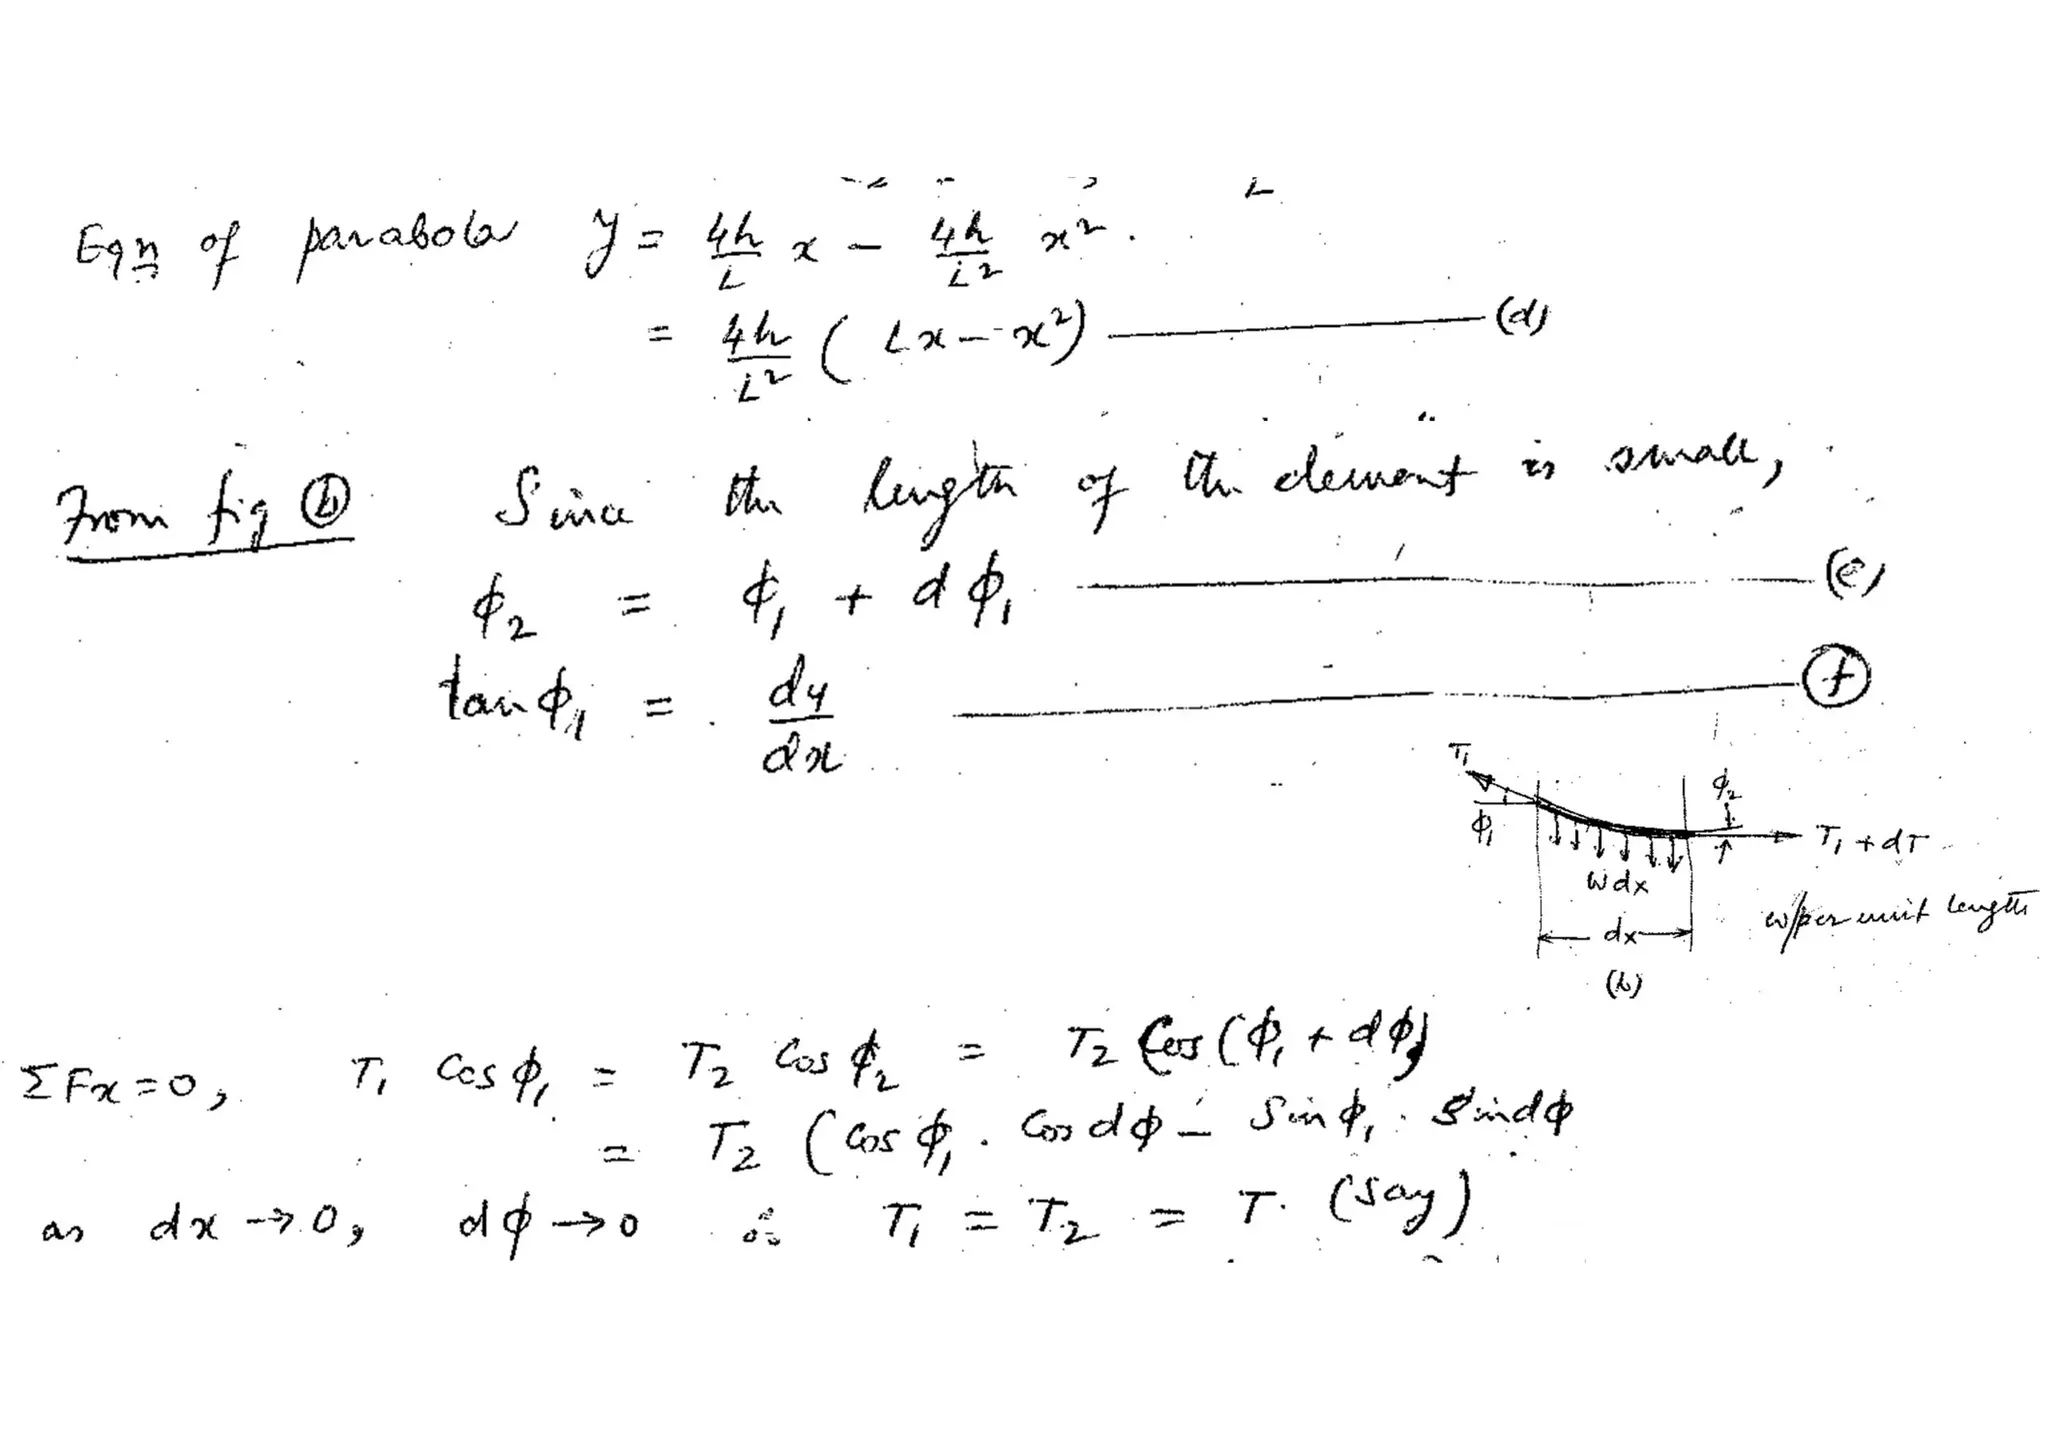 Eqn of parabola y = 4h/L x - 4h/L² x².
= 4h/L² ( Lx - x²) (d)
From fig (b) Since the length of the element is small,
φ₂ = φ₁ + dφ₁ (e)
tan φ₁ = dy/dx (f)
T₁ φ₂
φ₁ T₁ + dT
wdx
w/per unit length
dx
(b)
ΣFx = 0, T₁ Cos φ₁ = T₂ Cos φ₂ = T₂ Cos (φ₁ + dφ)
= T₂ (Cos φ₁ . Cos dφ - Sin φ₁ . Sin dφ
as dx → 0, dφ → 0 ∴ T₁ = T₂ = T. (say)